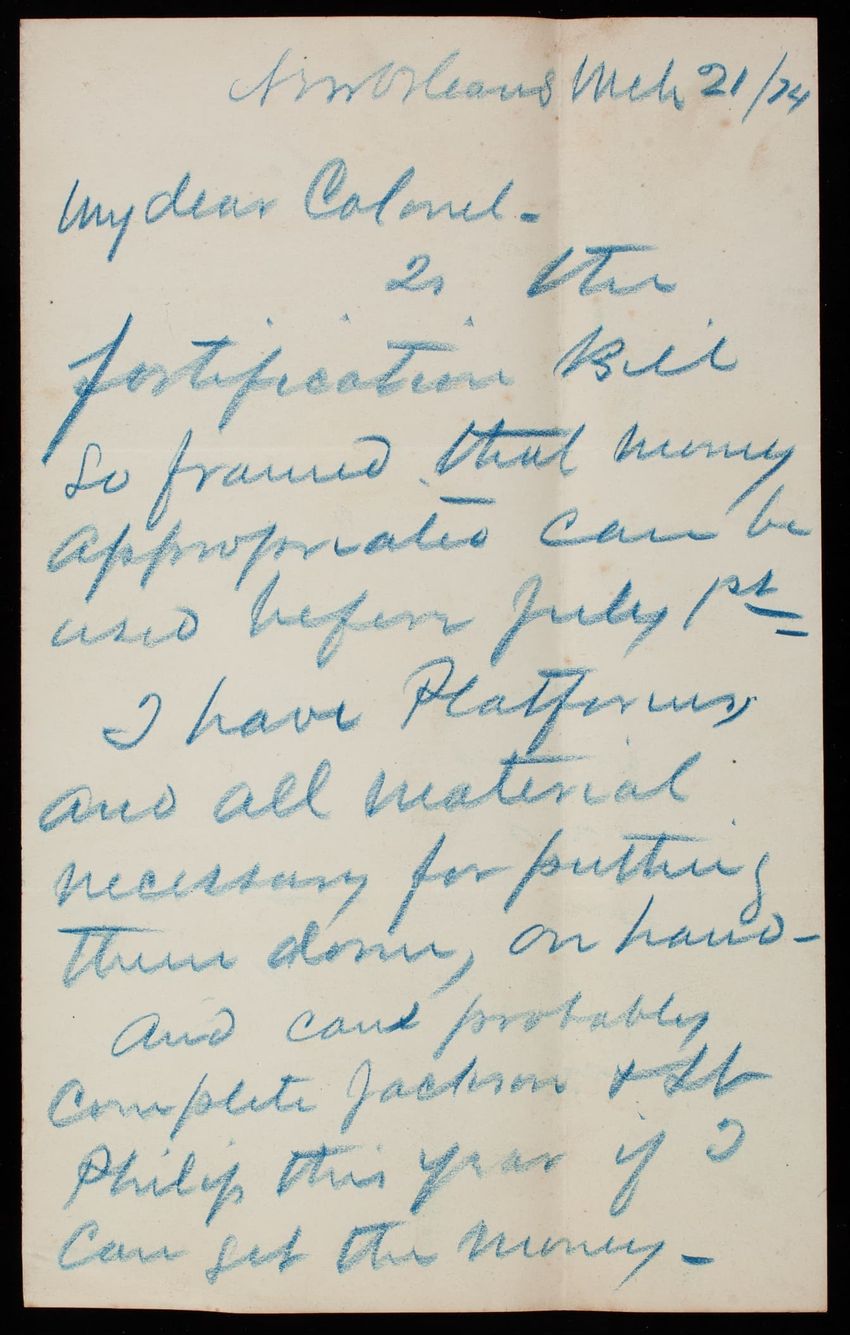 New Orleans Mch 21/74
My dear Colonel -
Is the
fortification Bill
So framed that money
appropriated can be
used before July 1st
I have Platforms,
and all material
necessary for putting
them down, on hand -
and can probably
Complete Jackson & St
Philip this year if I
Can get the money -